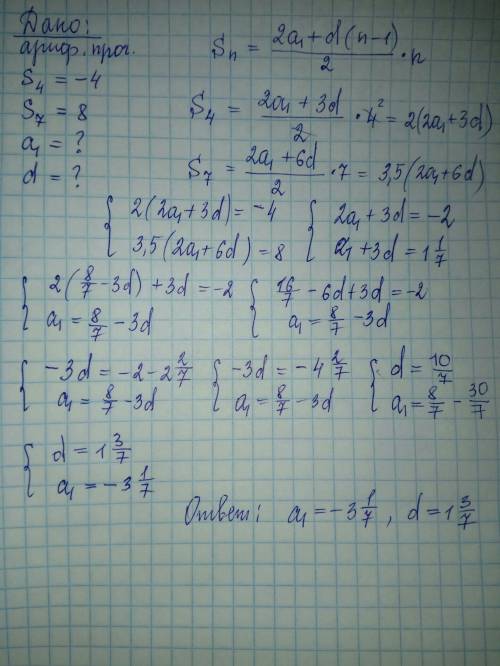 Дано:
ариф. прог.
S₄ = -4
S₇ = 8
a₁ = ?
d = ?
Sₙ = (2a₁ + d(n-1))/2 · n
S₄ = (2a₁ + 3d)/2 · 4² = 2(2a₁ + 3d)
S₇ = (2a₁ + 6d)/2 · 7 = 3,5(2a₁ + 6d)
{ 2(2a₁ + 3d) = -4 { 2a₁ + 3d = -2
3,5(2a₁ + 6d) = 8 a₁ + 3d = 1 1/7
{ 2(8/7 - 3d) + 3d = -2 { 16/7 - 6d + 3d = -2
a₁ = 8/7 - 3d a₁ = 8/7 - 3d
{ -3d = -2 - 2 2/7 { -3d = -4 2/7 { d = 10/7
a₁ = 8/7 - 3d a₁ = 8/7 - 3d a₁ = 8/7 - 30/7
{ d = 1 3/7
a₁ = -3 1/7
Ответ: a₁ = -3 1/7, d = 1 3/7